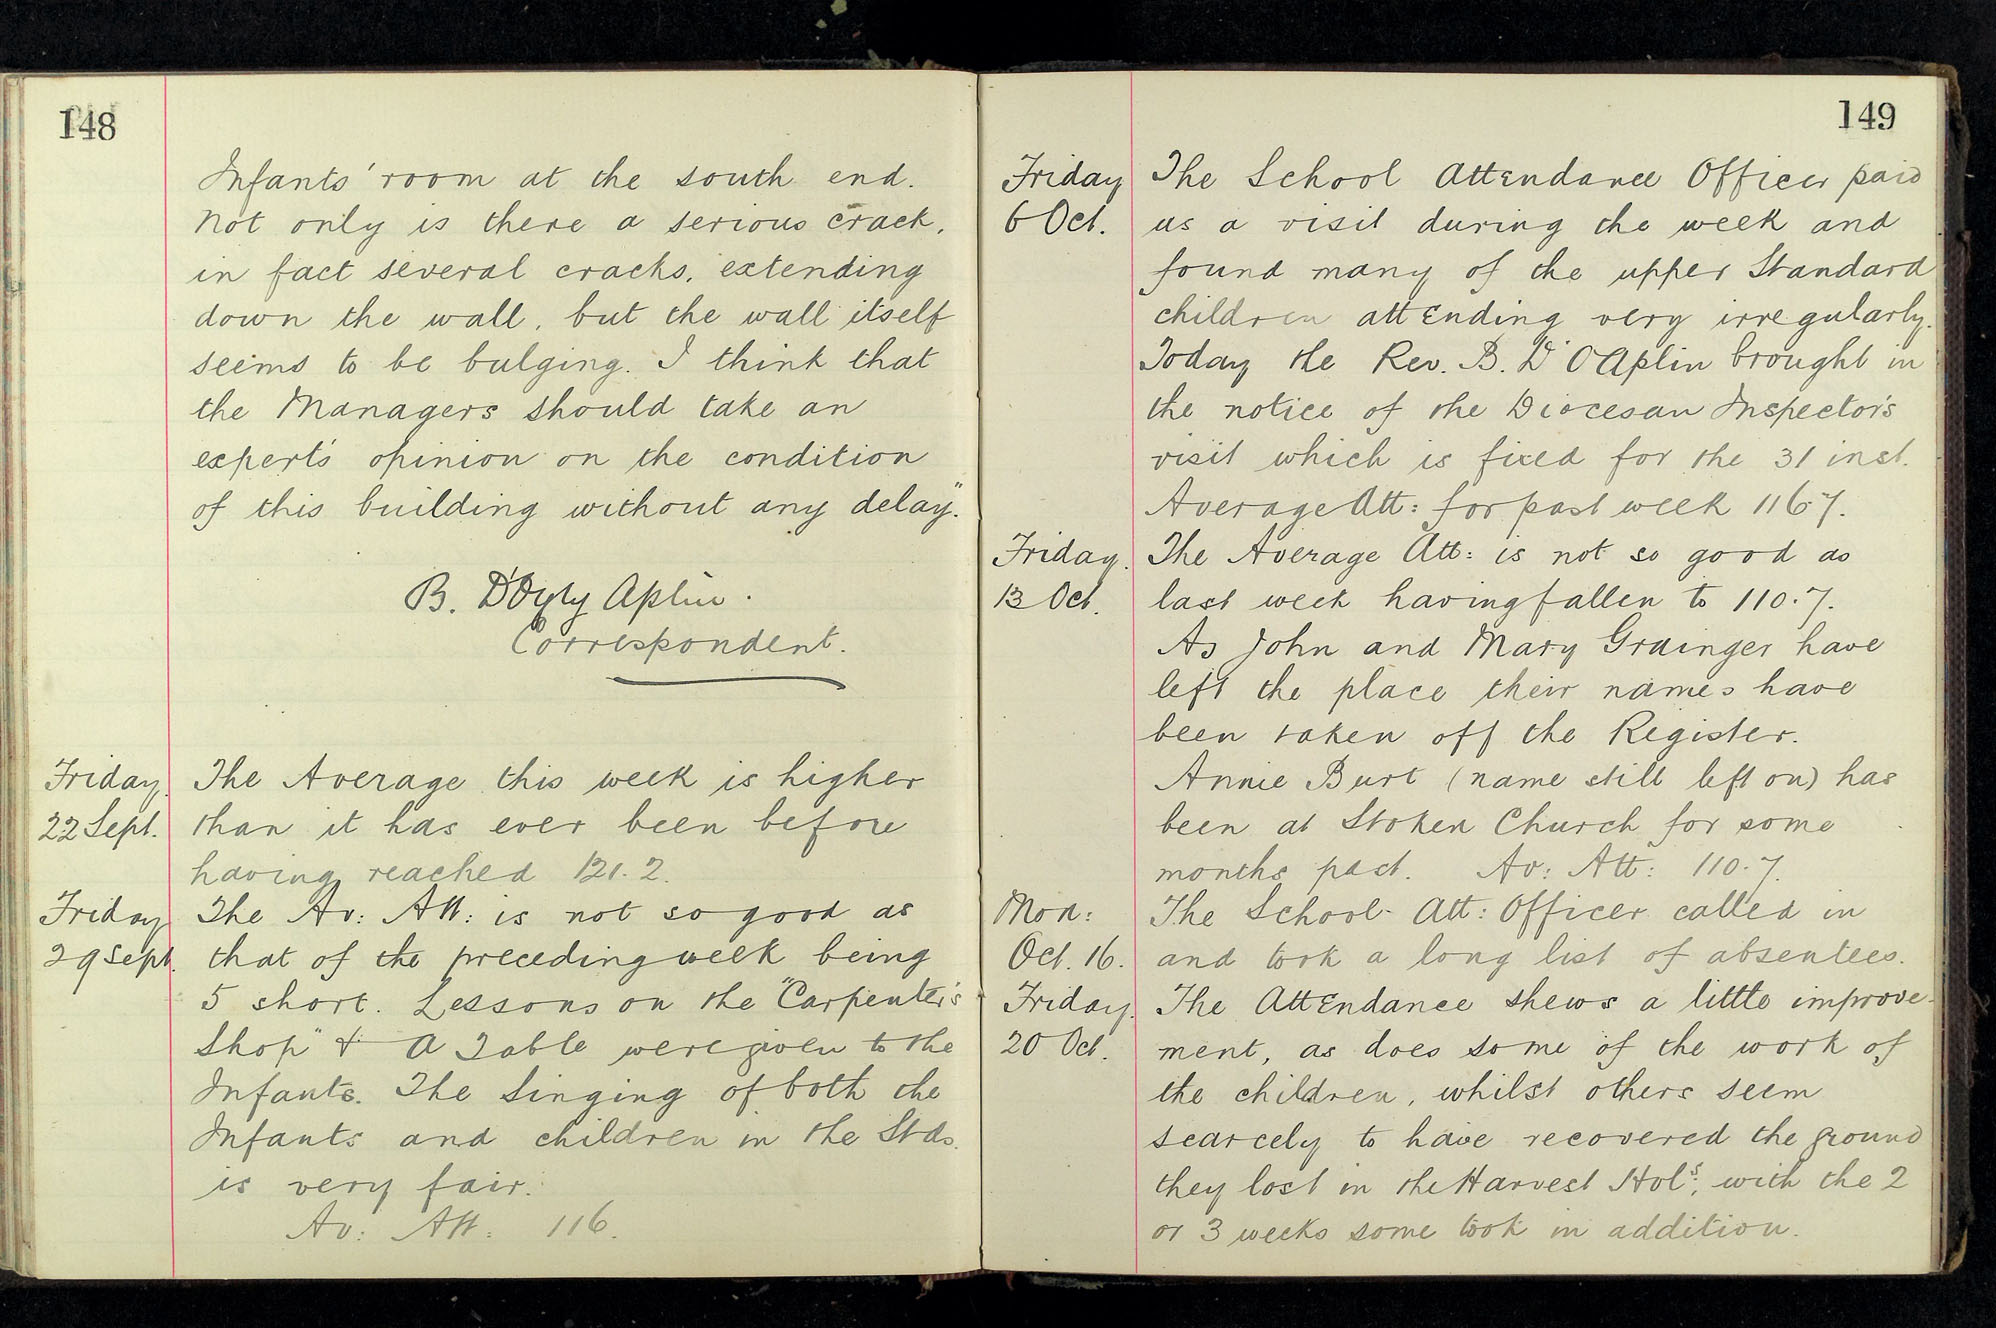 148
Infants' room at the south end.
Not only is there a serious crack,
in fact several cracks, extending
down the wall, but the wall itself
seems to be bulging. I think that
the Managers should take an
expert's opinion on the condition
of this building without any delay."
B. D'Oyly Aplin.
Correspondent.
Friday The Average this week is higher
22 Sept. than it has ever been before
having reached 121.2.
Friday The Av: Att: is not so good as
29 Sept. that of the preceding week being
5 short. Lessons on the "Carpenter's
Shop" & A Table were given to the
Infants. The Singing of both the
Infants and children in the Stds.
is very fair.
Av: Att: 116.
149
Friday The School Attendance Officer paid
6 Oct. us a visit during the week and
found many of the upper Standard
children attending very irregularly.
Today the Rev. B. D'O Aplin brought in
the notice of the Diocesan Inspector's
visit which is fixed for the 31 inst.
Average Att: for past week 116.7.
Friday. The Average Att: is not so good as
13 Oct. last week having fallen to 110.7.
As John and Mary Grainger have
left the place their names have
been taken off the Register.
Annie Burt (name still left on) has
been at Stoken Church for some
months past. Av: Att: 110.7.
Mon: The School Att: Officer called in
Oct. 16. and took a long list of absentees.
Friday. The Attendance shews a little improve-
20 Oct. ment, as does some of the work of
the children, whilst others seem
scarcely to have recovered the ground
they lost in the Harvest Hols, with the 2
or 3 weeks some took in addition.